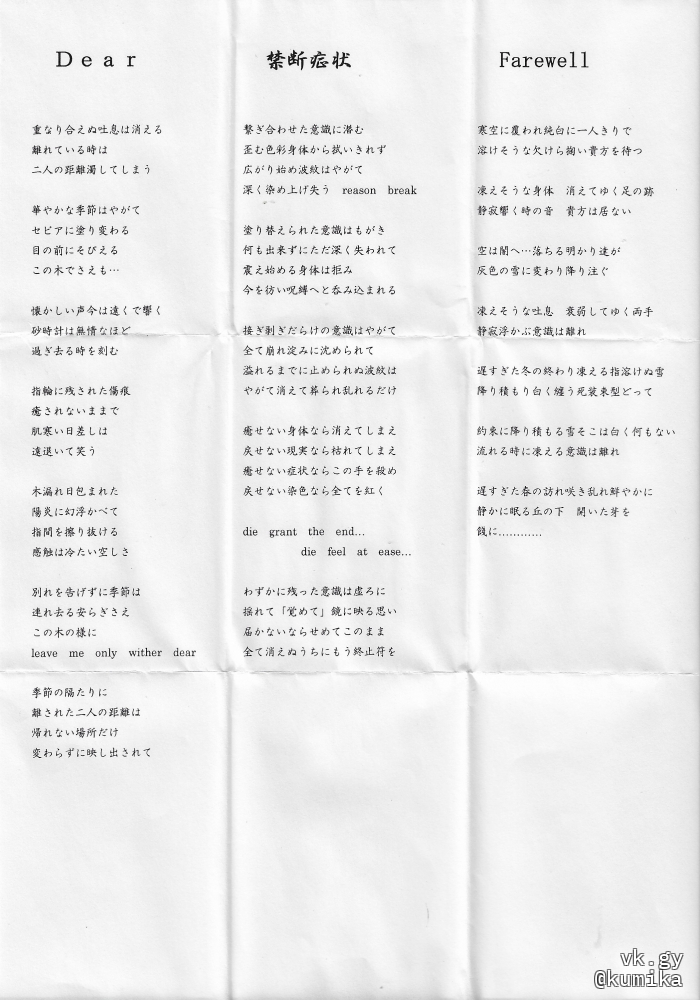 Dear
重なり合えぬ吐息は消える
離れている時は
二人の距離濁してしまう
華やかな季節はやがて
セピアに塗り変わる
目の前にそびえる
この木でさえも…
懐かしい声今は遠くで響く
砂時計は無情なほど
過ぎ去る時を刻む
指輪に残された傷痕
癒されないままで
肌寒い日差しは
遠退いて笑う
木漏れ日包まれた
陽炎に幻浮かべて
指間を擦り抜ける
感触は冷たい空しさ
別れを告げずに季節は
連れ去る安らぎさえ
この木の様に
leave me only wither dear
季節の隔たりに
離された二人の距離は
帰れない場所だけ
変わらずに映し出されて
禁断症状
繋ぎ合わせた意識に潜む
歪む色彩身体から拭いきれず
広がり始め波紋はやがて
深く染め上げ失う reason break
塗り替えられた意識はもがき
何も出来ずにただ深く失われて
震え始める身体は拒み
今を彷い呪縛へと呑み込まれる
接ぎ剥ぎだらけの意識はやがて
全て崩れ淀みに沈められて
溢れるまでに止められぬ波紋は
やがて消えて葬られ乱れるだけ
癒せない身体なら消えてしまえ
戻せない現実なら枯れてしまえ
癒せない症状ならこの手を殺め
戻せない染色なら全てを紅く
die grant the end…
die feel at ease…
わずかに残った意識は虚ろに
揺れて「覚めて」鏡に映る思い
届かないならせめてこのまま
全て消えぬうちにもう終止符を
Farewell
寒空に覆われ純白に一人きりで
溶けそうな欠けら掬い貴方を待つ
凍えそうな身体　消えてゆく足の跡
静寂響く時の音　貴方は居ない
空は闇へ…落ちる明かり達が
灰色の雪に変わり降り注ぐ
凍えそうな吐息　衰弱してゆく両手
静寂浮かぶ意識は離れ
遅すぎた冬の終わり凍える指溶けぬ雪
降り積もり白く纏う死装束型どって
約束に降り積もる雪そこは白く何もない
流れる時に凍える意識は離れ
遅すぎた春の訪れ咲き乱れ鮮やかに
静かに眠る丘の下　開いた芽を
餞に…………
vk.gy
@kumika